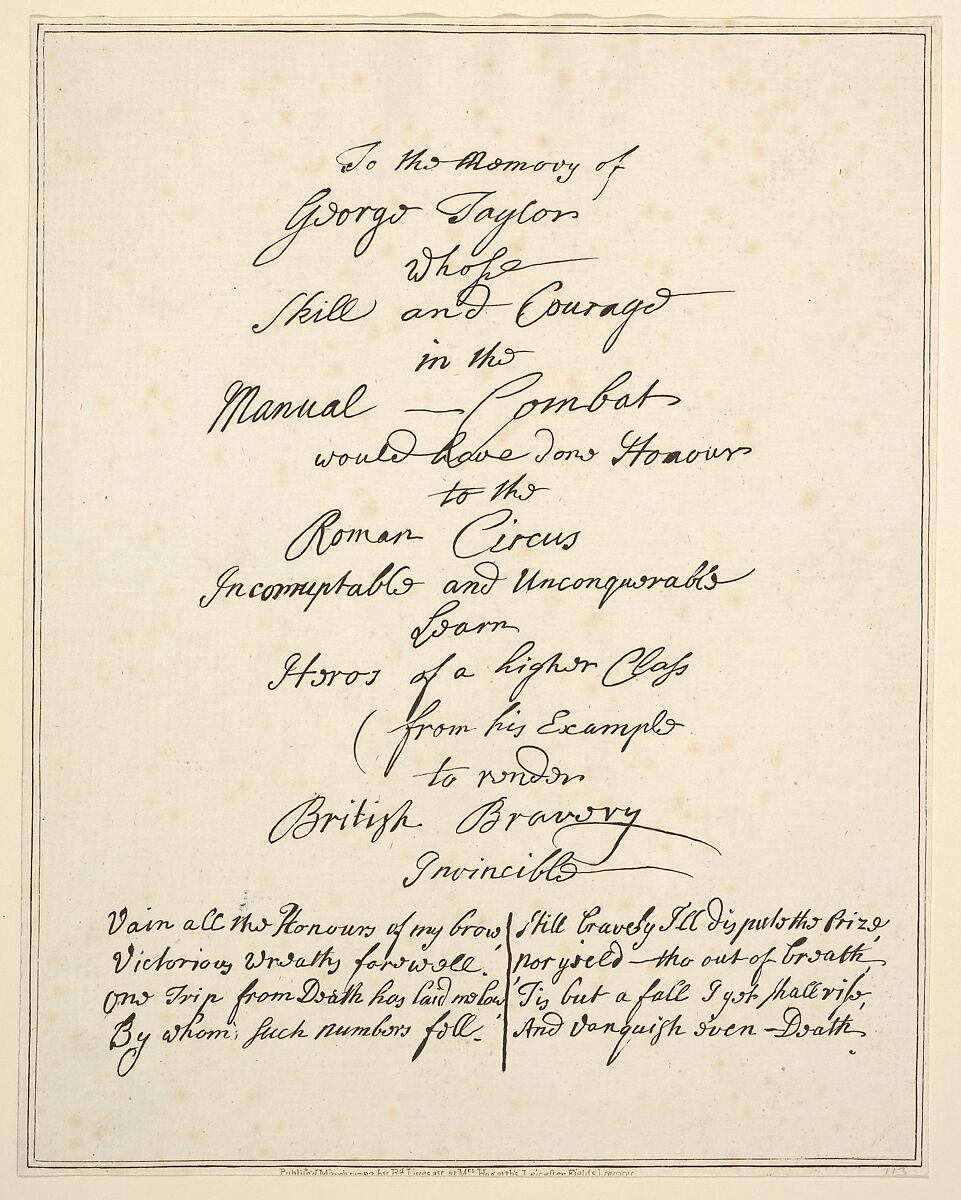 To the Memory of
George Taylor
whose
Skill and Courage
in the
Manual — Combat
would have done Honour
to the
Roman Circus
Incorruptable and Unconquerable
Learn
Heros of a higher Class
( from his Example
to render
British Bravery
Invincible
Vain all the Honours of my brow
Victorious Wreaths farewell.
one Trip from Death has laid me low
By whom, such numbers fell.
Still bravely I'll dispute the Prize
nor yield — tho out of breath
Tis but a fall I yet shall rise,
And Vanquish even — Death.
by Rd. Livesay at Mrs. Hogarths Leicester Fields London
113